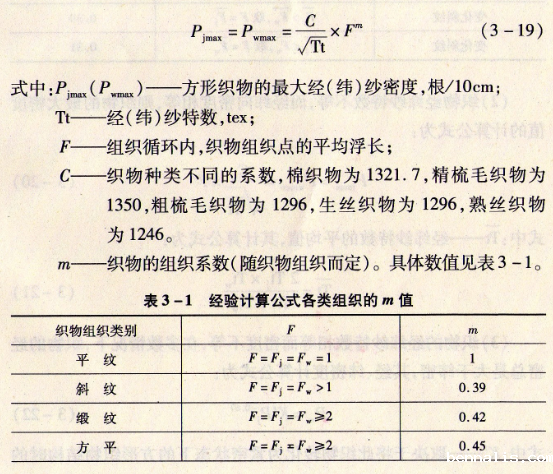 P_jmax = P_wmax = C/√Tt × F^m (3-19)
式中:P_jmax(P_wmax)——方形织物的最大经(纬)纱密度,根/10cm;
Tt——经(纬)纱特数,tex;
F——组织循环内,织物组织点的平均浮长;
C——织物种类不同的系数,棉织物为1321.7,精梳毛织物为
1350,粗梳毛织物为1296,生丝织物为1296,熟丝织物
为1246。
m——织物的组织系数(随织物组织而定)。具体数值见表3-1。
表3-1 经验计算公式各类组织的m值
织物组织类别 F m
平 纹 F=F_j=F_w=1 1
斜 纹 F=F_j=F_w>1 0.39
缎 纹 F=F_j=F_w≥2 0.42
方 平 F=F_j=F_w≥2 0.45